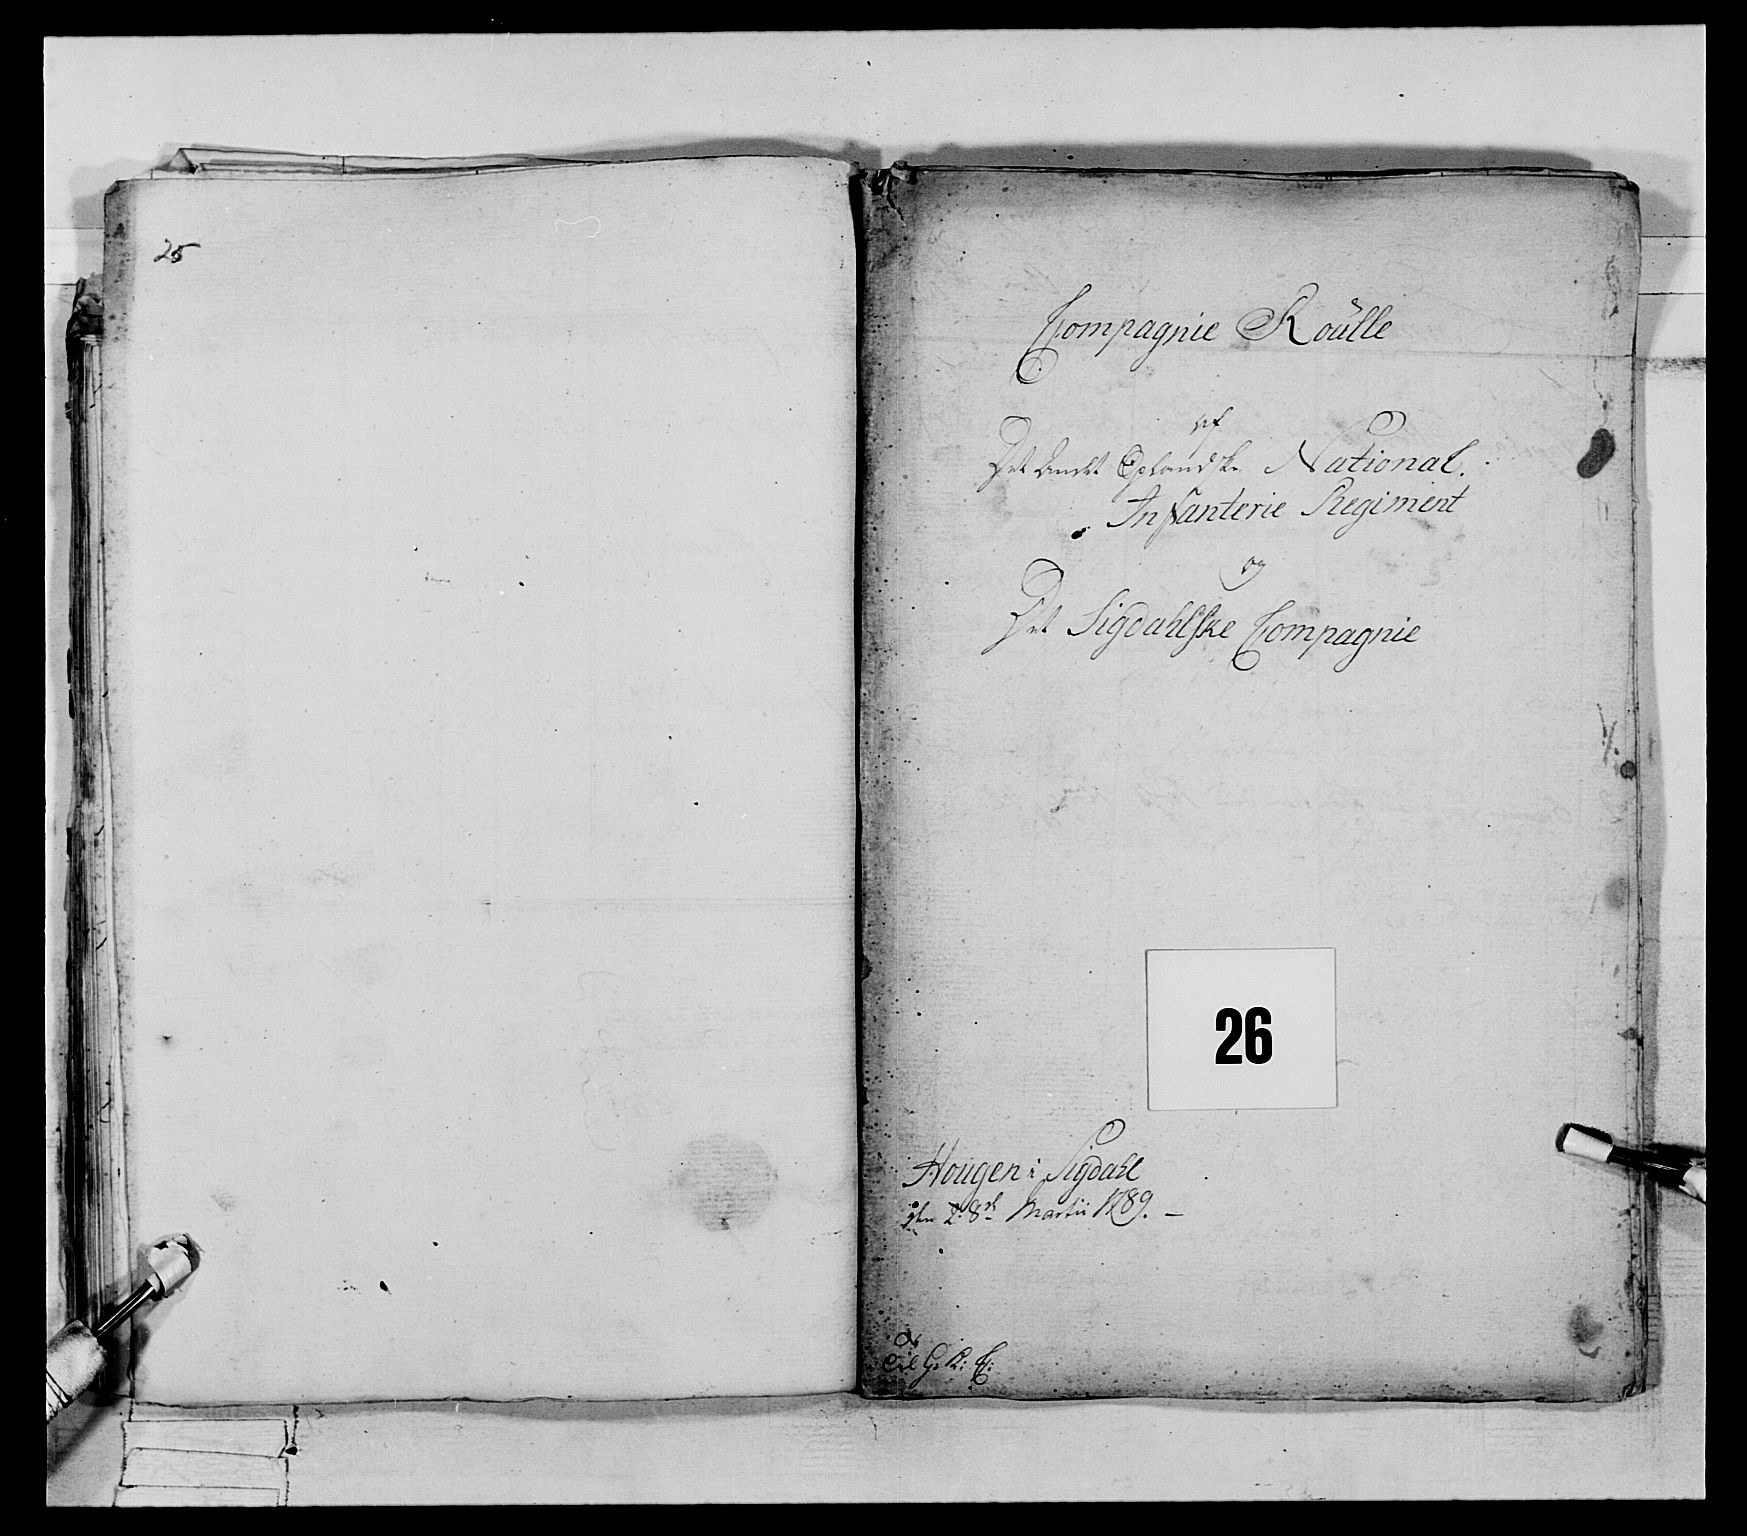 25
Compagnie Roülle
af
Det Andet Oplandske National.
Infanterie Regiment
og
Det Sigdahlske Compagnie
26
Hougen i Sigdahl
den 28de Martii 1789. –
Til G: K: C: